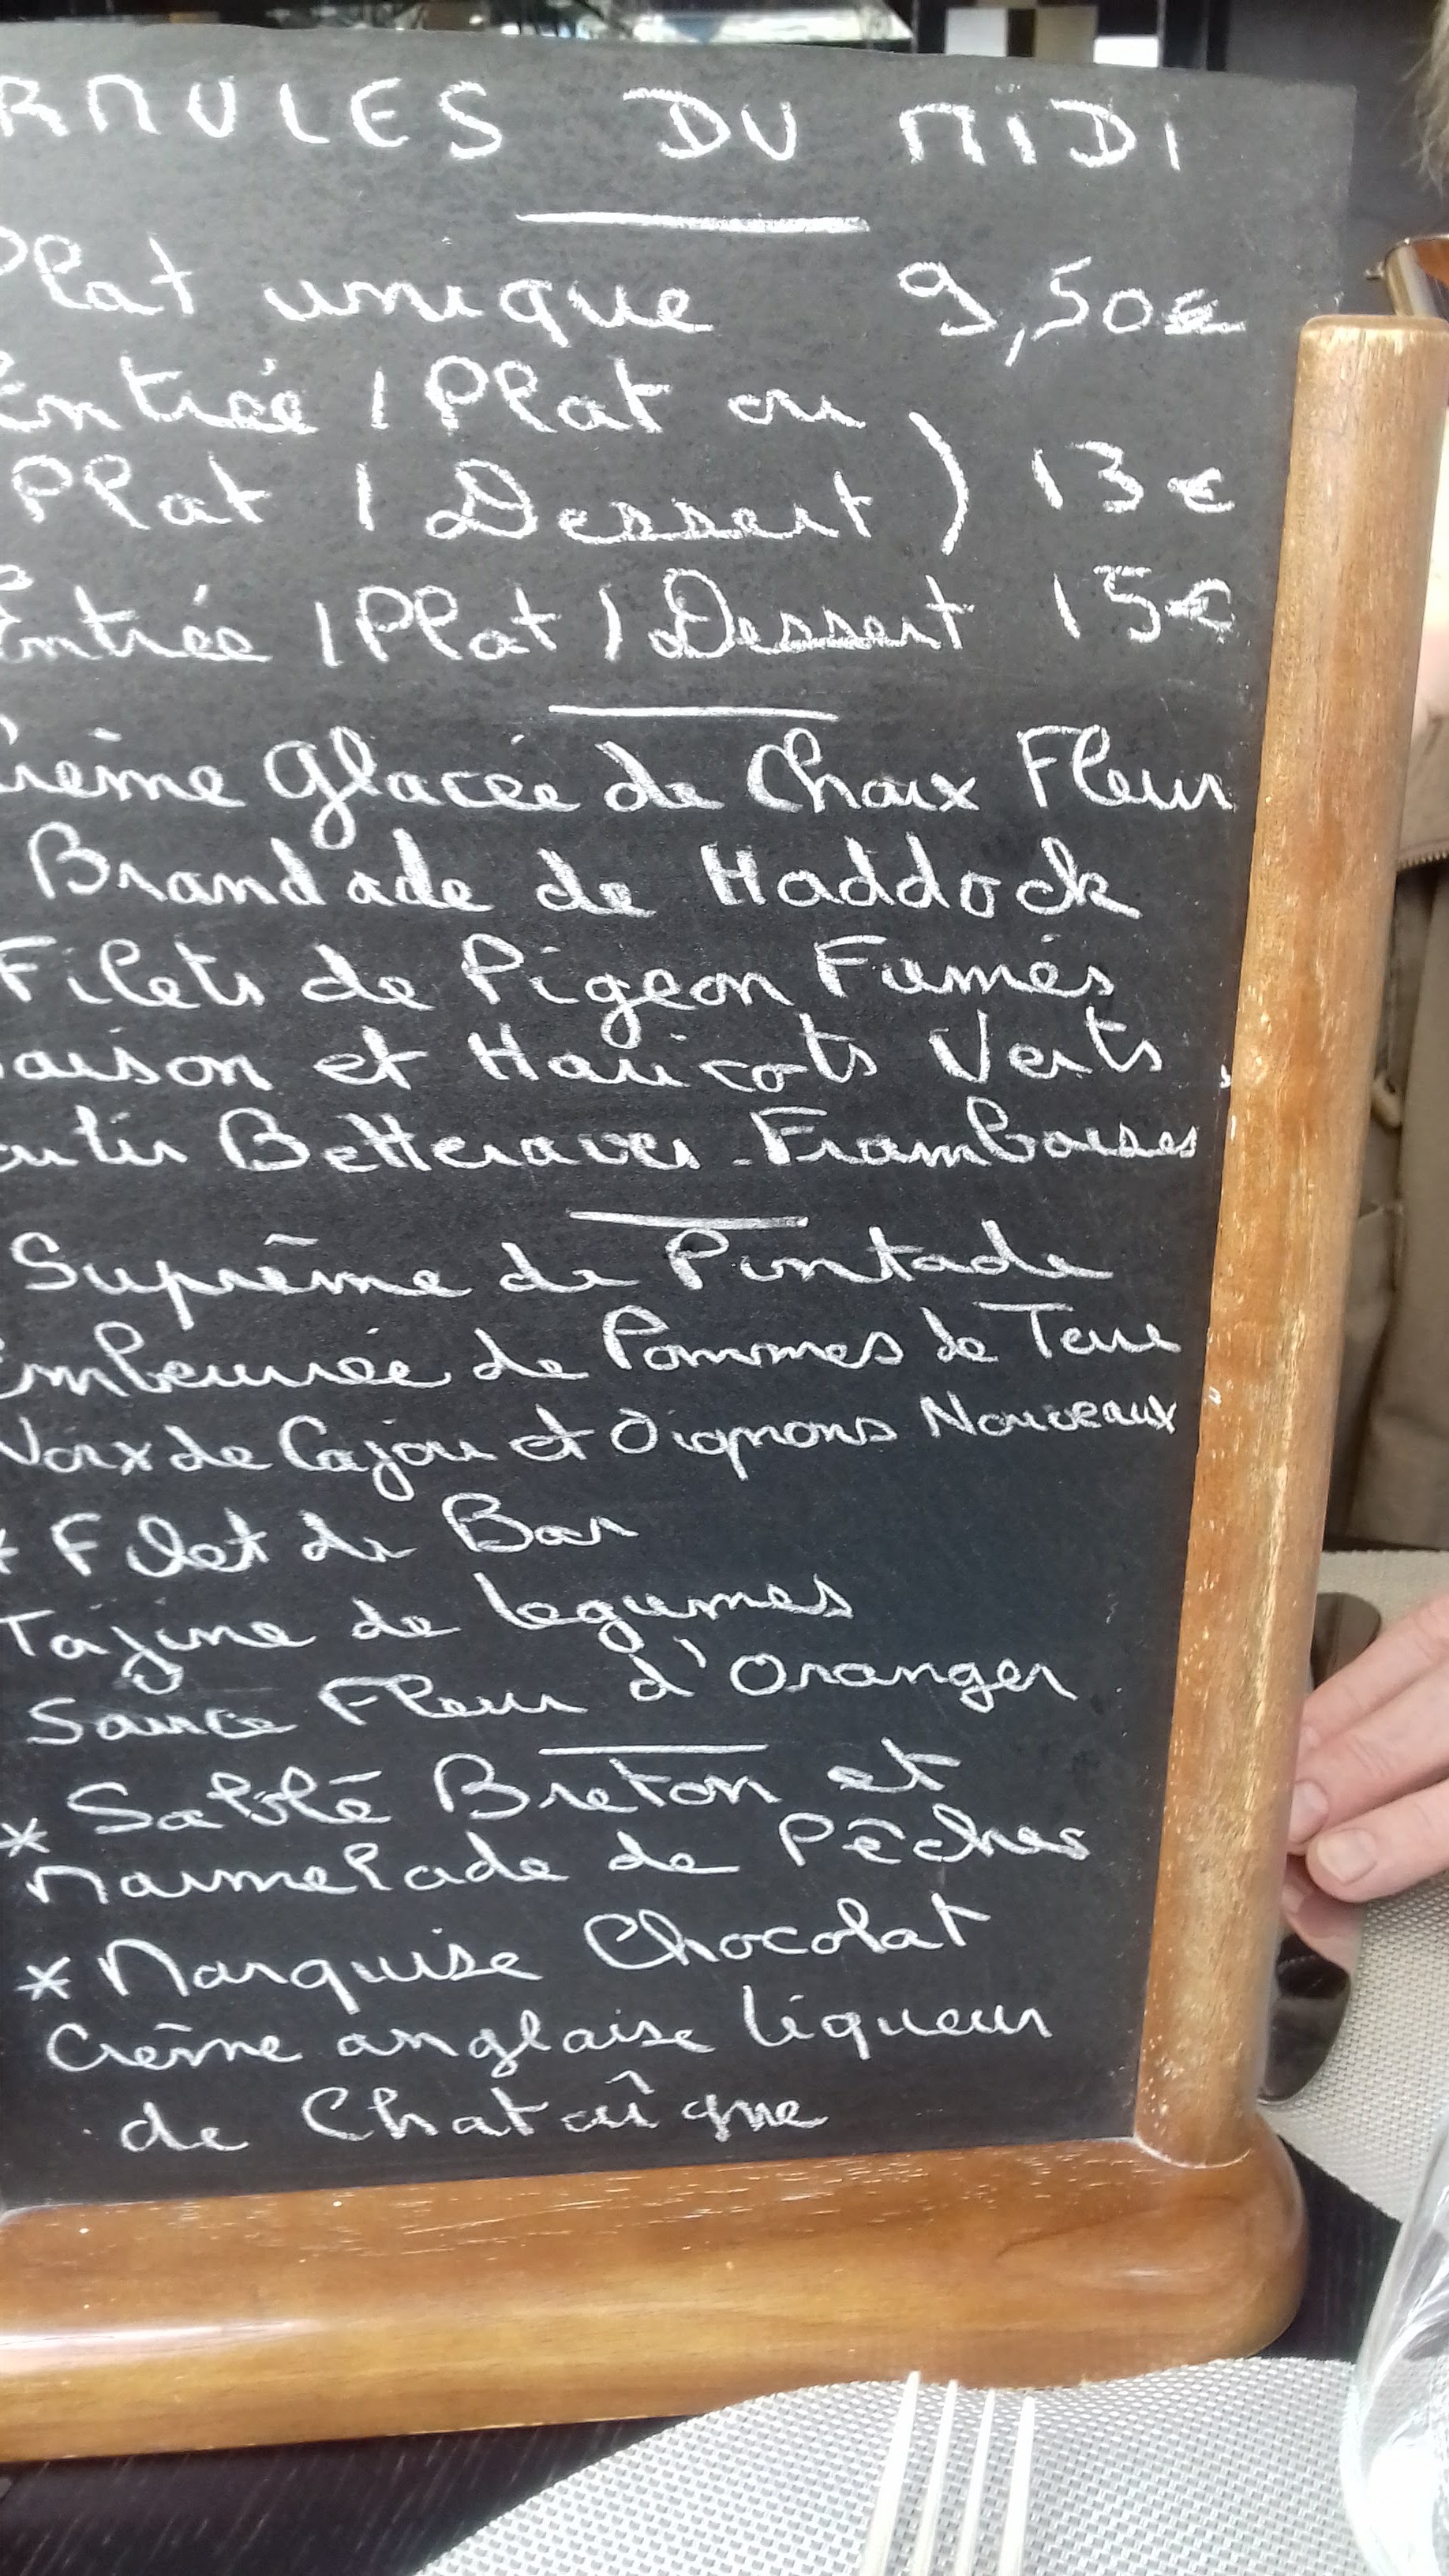 RMULES DU MIDI
Plat unique 9,50€
Entrée / Plat ou
Plat / Dessert ) 13€
Entrée / Plat / Dessert 15€
Crème Glacée de Choux Fleur
Brandade de Haddock
Filets de Pigeon Fumés
aison et Haricots Verts
Betteraves - Framboises
Suprême de Pintade
Embeurrée de Pommes de Terre
Noix de Cajou et Oignons Nouveaux
* Filet de Bar
Tajine de légumes
Sauce Fleur d'Oranger
* Sablé Breton et
Marmelade de Pêches
* Marquise Chocolat
Crème anglaise liqueur
de Chataîgne